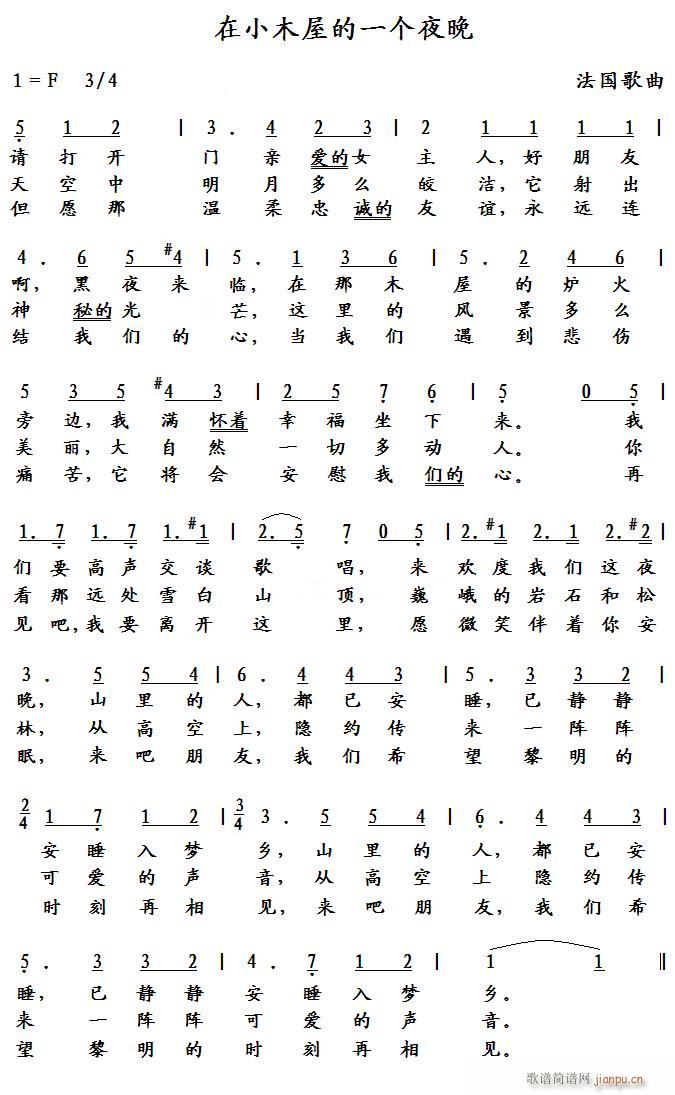 在小木屋的一个夜晚
1 = F 3/4 法国歌曲
5 1 2 | 3 . 4 2 3 | 2 1 1 1 1 |
请 打 开 门 亲 爱的 女 主 人, 好 朋 友
天 空 中 明 月 多 么 皎 洁, 它 射 出
但 愿 那 温 柔 忠 诚的 友 谊, 永 远 连
4 . 6 5 #4 | 5 . 1 3 6 | 5 . 2 4 6 |
啊, 黑 夜 来 临, 在 那 木 屋 的 炉 火
神 秘的 光 芒, 这 里 的 风 景 多 么
结 我 们 的 心, 当 我 们 遇 到 悲 伤
5 3 5 #4 3 | 2 5 7 6 | 5 0 5 |
旁 边, 我 满 怀着 幸 福 坐 下 来。 我
美 丽, 大 自 然 一 切 多 动 人。 你
痛 苦, 它 将 会 安 慰 我 们的 心。 再
1. 7 1. 7 1. #1 | 2. 5 7 0 5 | 2. #1 2. 1 2. #2 |
们 要 高 声 交 谈 歌 唱, 来 欢 度 我 们 这 夜
看 那 远 处 雪 白 山 顶, 巍 峨 的 岩 石 和 松
见 吧, 我 要 离 开 这 里, 愿 微 笑 伴 着 你 安
3 . 5 5 4 | 6 . 4 4 3 | 5 . 3 3 2 |
晚, 山 里 的 人, 都 已 安 睡, 已 静 静
林, 从 高 空 上, 隐 约 传 来 一 阵 阵
眠, 来 吧 朋 友, 我 们 希 望 黎 明 的
2/4 1 7 1 2 | 3/4 3 . 5 5 4 | 6 . 4 4 3 |
安 睡 入 梦 乡, 山 里 的 人, 都 已 安
可 爱 的 声 音, 从 高 空 上 隐 约 传
时 刻 再 相 见, 来 吧 朋 友, 我 们 希
5 . 3 3 2 | 4 . 7 1 2 | 1 1 ‖
睡, 已 静 静 安 睡 入 梦 乡。
来 一 阵 阵 可 爱 的 声 音。
望 黎 明 的 时 刻 再 相 见。
歌谱简谱网
jianpu.cn